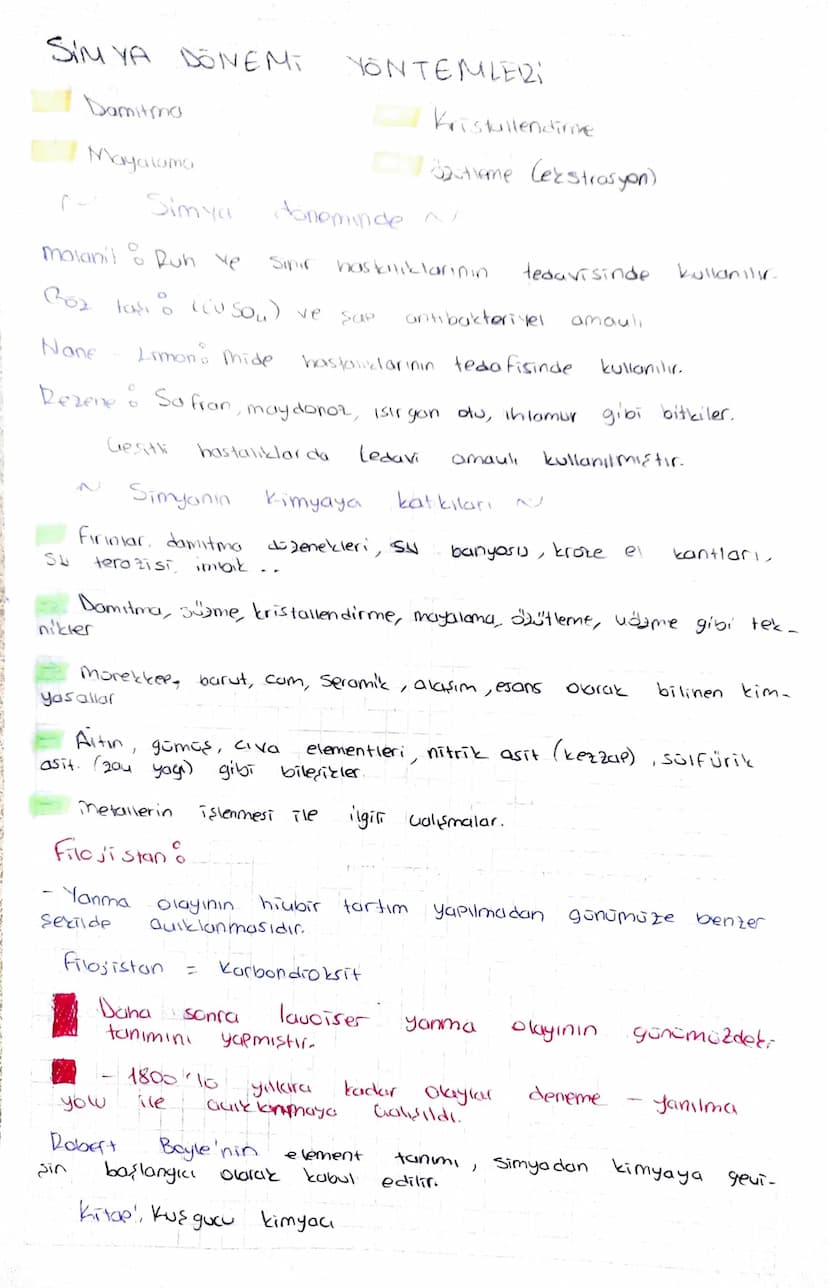 SİMYA DÖNEMİ YÖNTEMLERİ
Damıtma
Kristallendirme
Mayalama
Özütleme (ekstrasyon)
~ Simya döneminde ~
Ruh ve sinir hastalıklarının tedavisinde kullanılır.
Göz taşı: (CuSO₄) ve şap antibakteriyel amaçlı
Nane - Limon: Mide hastalıklarının tedafisinde kullanılır.
Rezene: Safran, maydonoz, ısırgan otu, ıhlamur gibi bitkiler.
Çeşitli hastalıklarda tedavi amaçlı kullanılmıştır.
~ Simyanın kimyaya katkıları ~
Fırınlar, damıtma düzenekleri, su banyosu, kroze el kantları,
su terazisi, imbik ..
Damıtma, süzme, kristallendirme, mayalama, özütleme, çözme gibi tek-
nikler
Mürekkep, barut, cam, seramik, alaşım, esans olarak bilinen kim-
yasallar
Altın, gümüş, cıva elementleri, nitrik asit (kezzap), sülfürik
asit. (zaç yağı) gibi bileşikler.
Metallerin işlenmesi ile ilgili çalışmalar.
Filojistan:
- Yanma olayının hiçbir tartım yapılmadan günümüze benzer
şekilde açıklanmasıdır.
Filojistan = Karbondioksit
Daha sonra lavoiser yanma olayının günümüzdeki
tanımını yapmıştır.
- 1800'lü yıllara kadar olaylar deneme - yanılma
yolu ile açıklanmaya çalışıldı.
Robert Boyle'nin element tanımı, simyadan kimyaya geçi-
şin başlangıcı olarak kabul edilir.
Kitap: Kuşkucu kimyacı